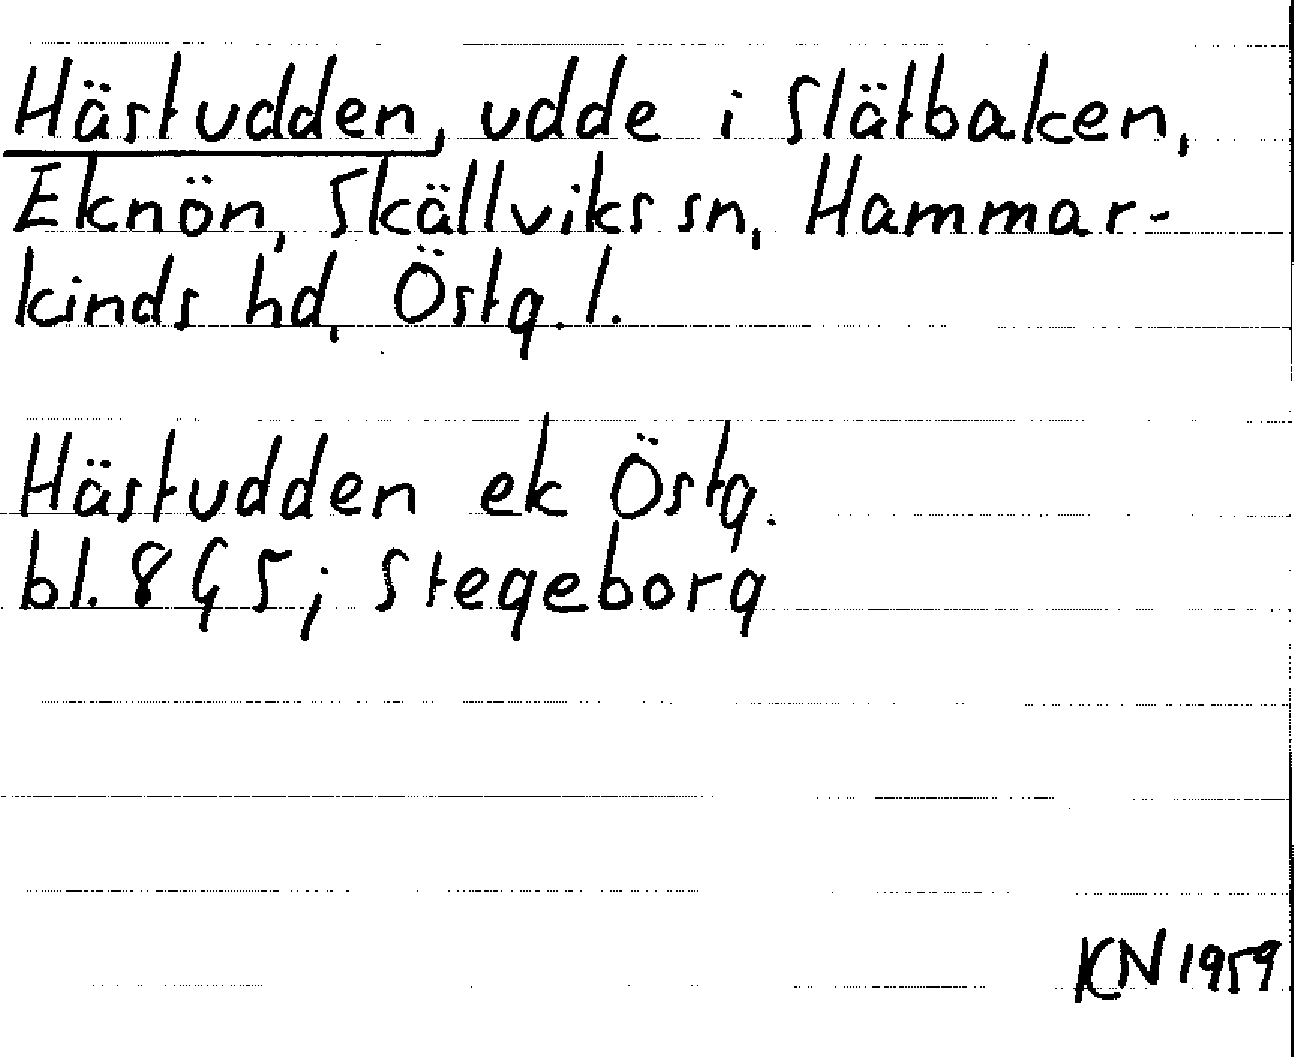 Hästudden, udde i Slätbaken,
Eknön, Skällviks sn, Hammar-
kinds hd, Östg. l.
Hästudden ek Östg.
bl. 8 G 5; Stegeborg
KN 1959